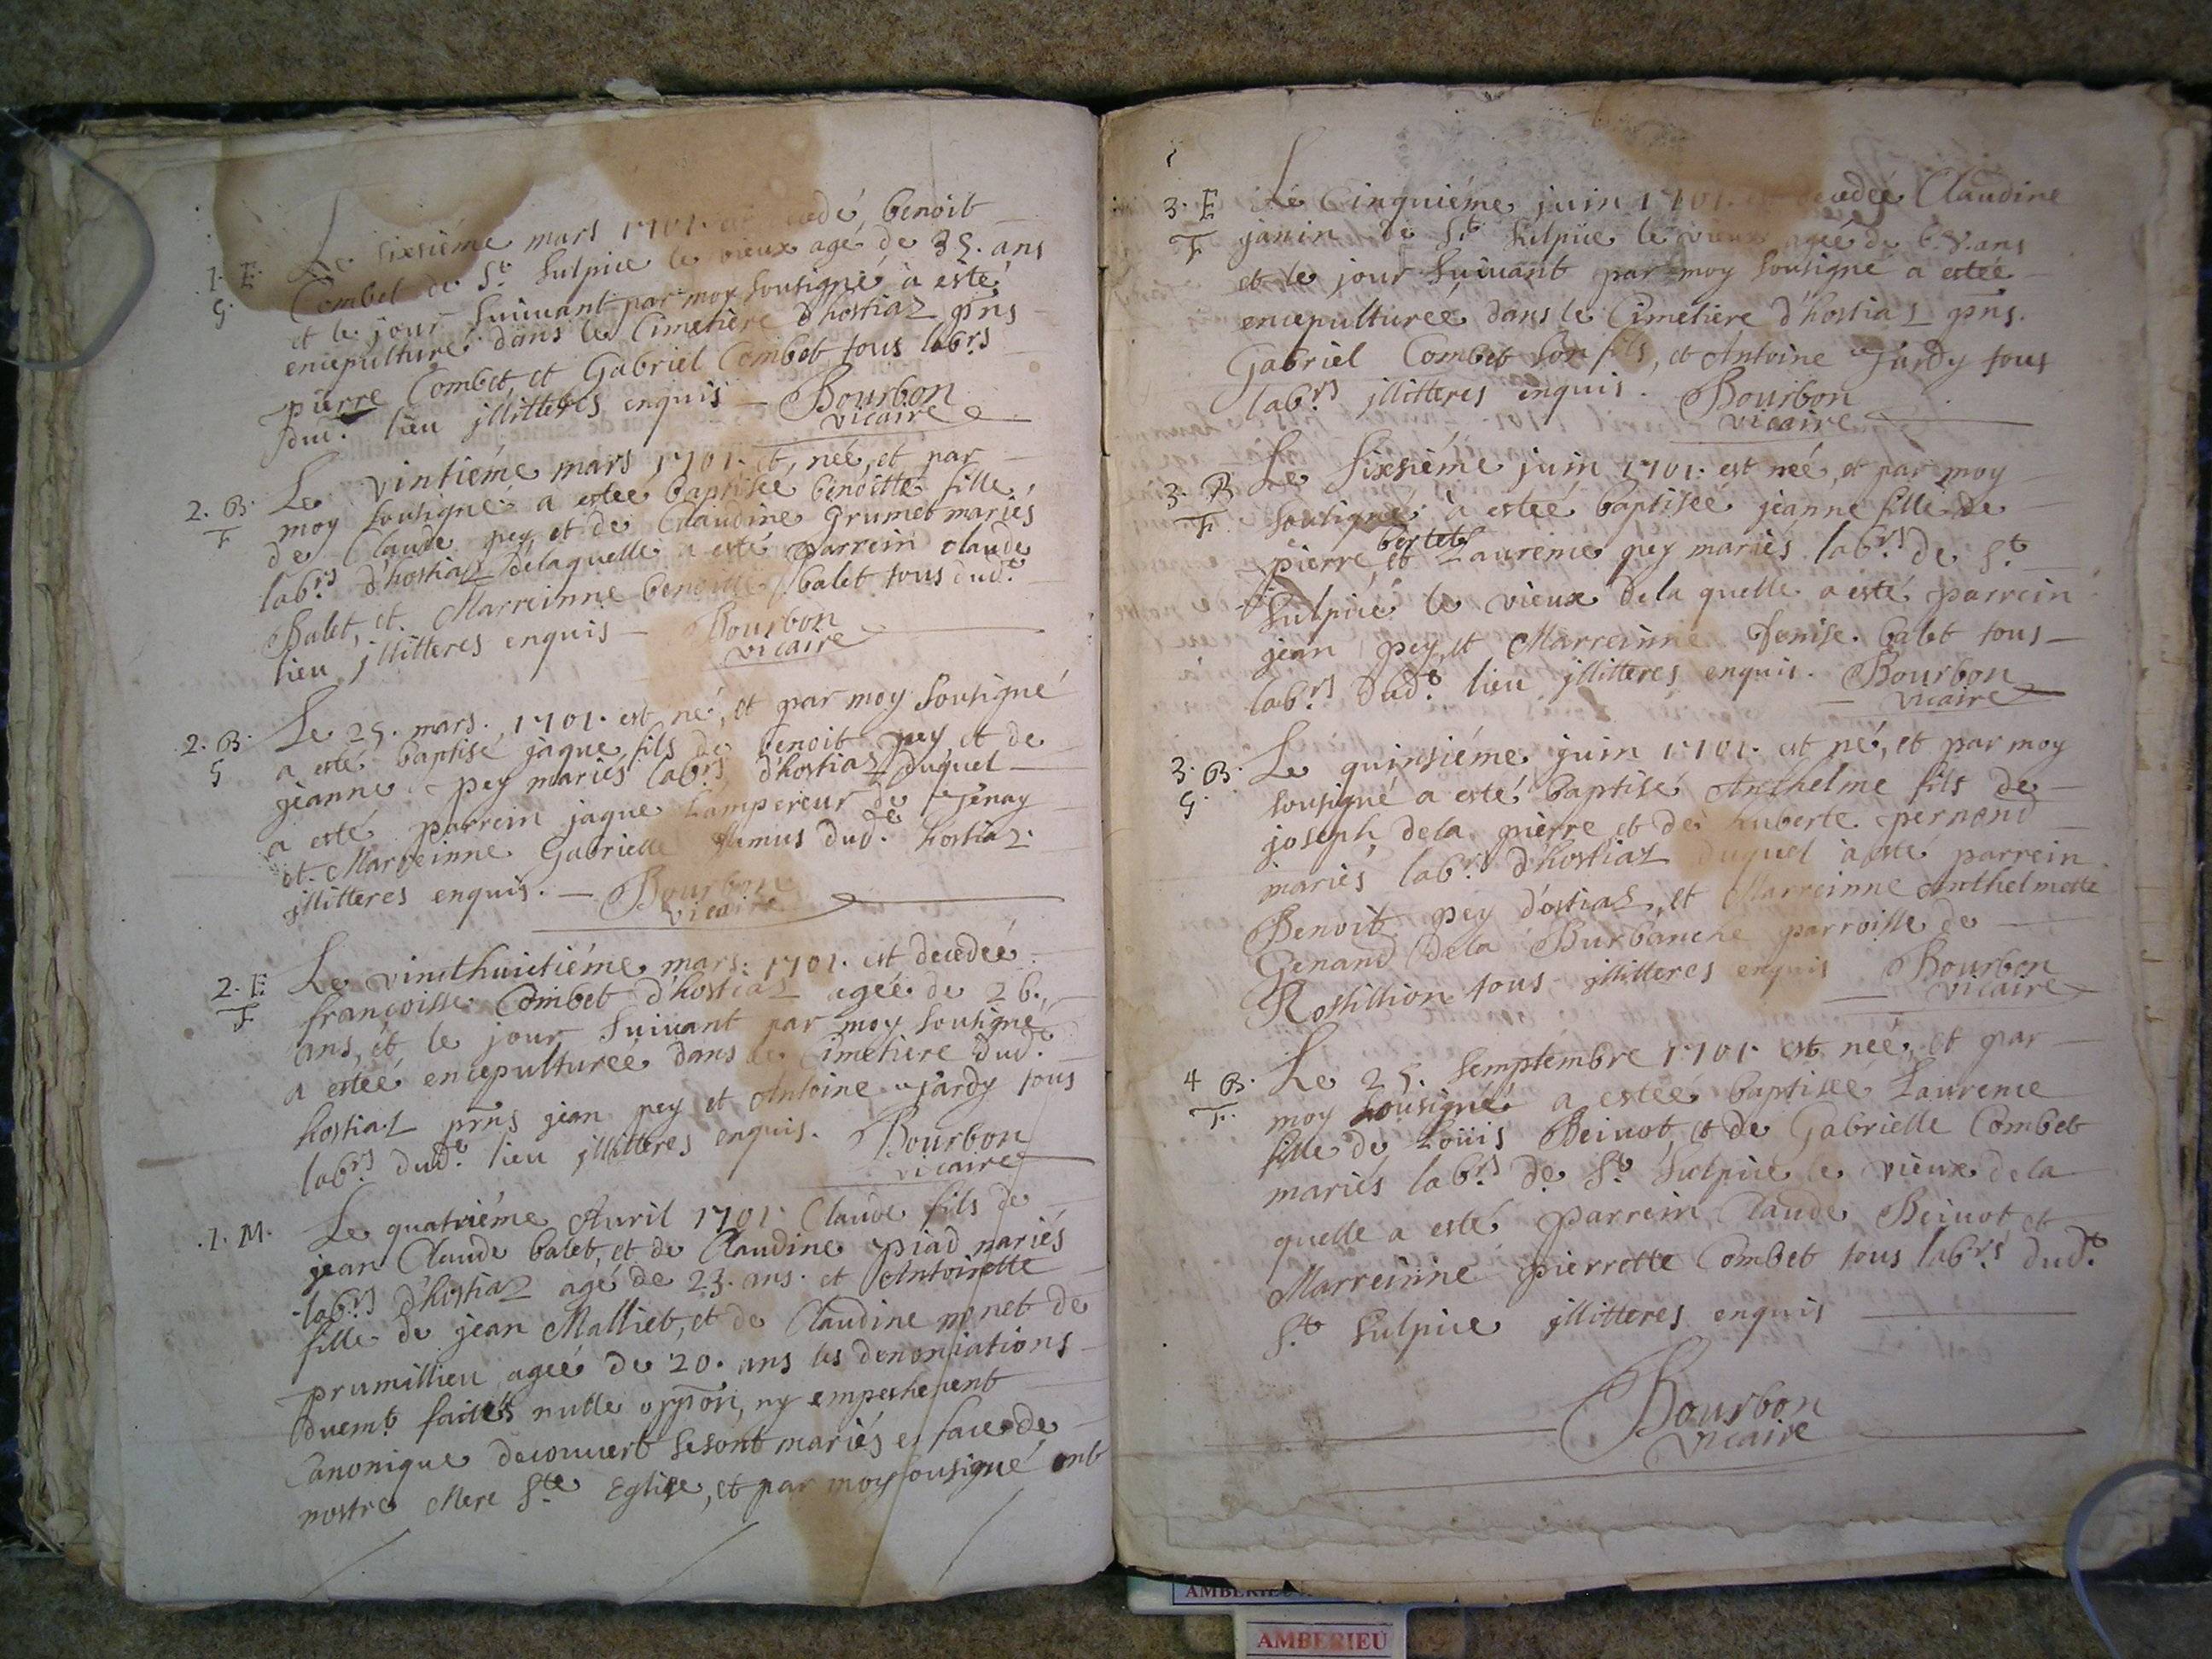 1. E.
G.
Le sixsiéme mars 1701. cedé benoit
Combet de St. Sulpice le vieux agé de 35. ans
et le jour suiuant par moy sousigné à esté
encepulturé dans le Cimetiere d'hostiaz pns
pierre Combet, et Gabriel Combet tous labrs
dud. lieu jllitteres enquis — Bourbon
vicaire
2. B.
F
Le vintiéme mars 1701. et, neé, et par
moy sousigné a esteé baptiseé benoitte fille
de Claude pey, et de Claudine Grumet mariés
labrs d'hostiaz delaquelle a esté parrein claude
Balet, et Marreinne benoitte balet tous dud.
lieu jllitteres enquis — Bourbon
vicaire
2. B.
G
Le 25. mars. 1701. est né, et par moy sousigné
a esté baptisé jaque fils de benoit pey et de
jeanne pey mariés labrs d'hostiaz duquel
a esté parrein jaque Lampereur de Jenay
et Marreinne Gabrielle dud. hostiaz
jllitteres enquis. — Bourbon
vicaire
2. E
F
Le vincthuictiéme mars. 1701. est decedeé
françoise Combet d'hostiaz ageé de 26.
ans, et le jour suiuant par moy sousigné
a esteé encepultureé dans le Cimetiere dud.
hostiaz pns jean pey et Antoine Jardy tous
labrs dud. lieu jllitteres enquis. Bourbon
vicaire
1. M.
Le quatriéme Auril 1701. Claude fils de
jean Claude balet, et de Claudine piad mariés
labrs d'hostiaz agé de 23. ans. et Antoinette
fille de jean Malliet, et de Claudine monet de
prumillieu ageé de 20. ans les denonciations
duemt. faites nulle oppon, ny empeschement
Canonique decouuert se sont mariés en face de
nostre Mere Ste Eglise, et par moy sousigné ont
3. E
F
Le Cinquiéme juin 1701. decedeé Claudine
janin de St. Sulpice le vieux ageé de ans
et le jour suiuant par moy sousigné a esteé
encepultureé dans le Cimetiere d'hostiaz pns.
Gabriel Combet son fils, et Antoine Jardy tous
labrs jllitteres enquis. Bourbon
vicaire
3. B
F.
Le sixsiéme juin 1701. est neé, et par moy
sousigné à esteé baptiseé jeanne fille de
bertet
pierre, et Laurence pey mariés labrs de St.
Sulpice le vieux dela quelle a esté parrein
jean pey, et Marreinne Denise balet tous
labrs dud. lieu jllitteres enquis. Bourbon
vicaire
3. B.
G.
Le quinsiéme juin 1701. est né, et par moy
sousigné a esté baptisé Anthelme fils de
joseph dela pierre et de huberte pernand
mariés labrs d'hostiaz duquel à esté parrein
Benoit pey d'ostiaz, et Marreinne Anthelmette
Genand dela Burbanche parroisse de
Rossillion tous jllitteres enquis Bourbon
vicaire
4 B.
F.
Le 25. semptembre 1701. est neé, et par
moy sousigné a esteé baptiseé Laurence
fille de Loüis Beiuot, et de Gabrielle Combet
mariés labrs de St. Sulpice le vieux dela
quelle a esté parrein Claude Beiuot et
Marreinne pierrette Combet tous labrs dud.
St. Sulpice jllitteres enquis
Bourbon
vicaire
AMBERIEU